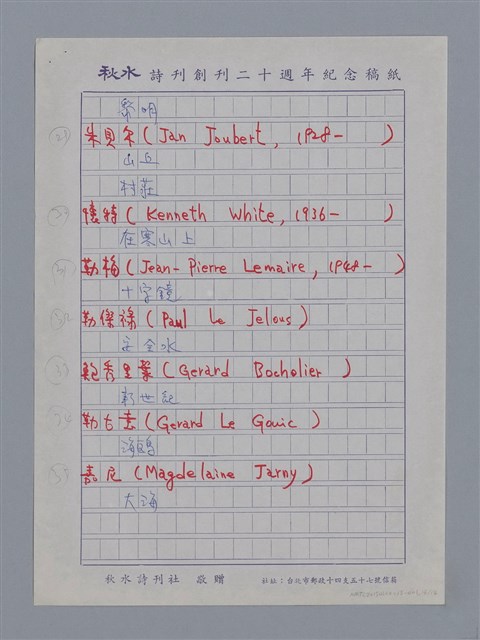 秋水 詩刊創刊二十週年紀念稿紙
黎明
朱貝尔(Jan Joubert, 1928- )
山丘
村莊
懷特(Kenneth White, 1936- )
在寒山上
勒梅(Jean-Pierre Lemaire, 1948- )
十字鏡
勒傑祿(Paul Le Jelous)
安全水
鮑秀里葉(Gerard Bocholier)
新世紀
勒古意(Gerard Le Gouic)
海鷗
嘉尼(Magdelaine Jarny)
大海
秋水詩刊社 敬贈 社址:台北市郵政十四支五十七號信箱